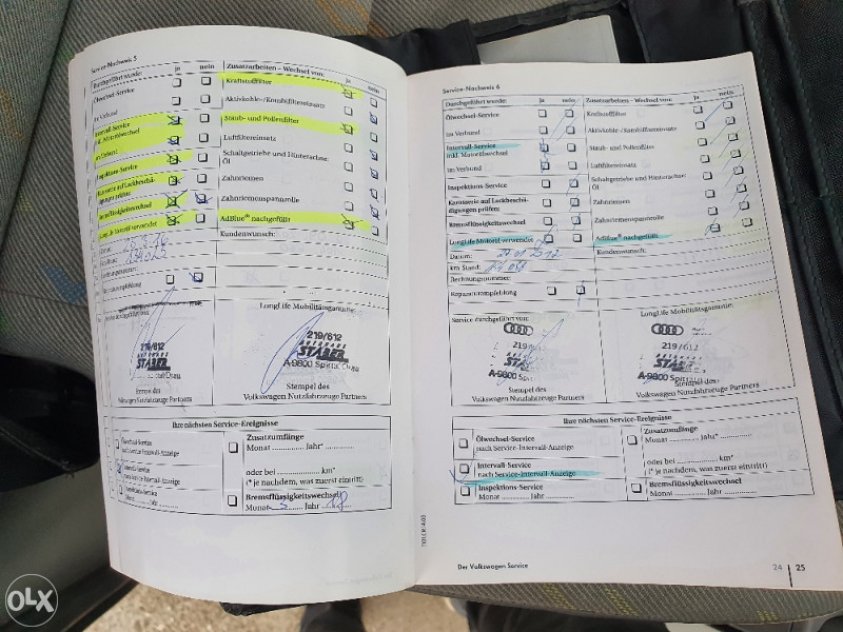 Service-Nachweis 5
Durchgeführt wurde: ja nein
Ölwechsel-Service
im Verbund
Intervall-Service
inkl. Motorölwechsel
im Verbund
Inspektions-Service
Karosserie auf Lackbeschä-
digungen prüfen:
Bremsflüssigkeitswechsel
LongLife Motoröl verwendet
Zusatzarbeiten – Wechsel von: ja nein
Kraftstofffilter
Aktivkohle-/Kombifiltereinsatz
Staub- und Pollenfilter
Luftfiltereinsatz
Schaltgetriebe und Hinterachse:
Öl
Zahnriemen
Zahnriemenspannrolle
AdBlue® nachgefüllt
Kundenwunsch:
LongLife Mobilitätsgarantie:
219/612
STABER
219/612
AUTOHAUS
STABER
A-9800 Spittal/Drau
Stempel des
Volkswagen Nutzfahrzeuge Partners
Stempel des
Volkswagen Nutzfahrzeuge Partners
Ihre nächsten Service-Ereignisse
Ölwechsel-Service
nach Service-Intervall-Anzeige
Intervall-Service
nach Service-Intervall-Anzeige
Inspektions-Service
Monat .......... Jahr ..........
Zusatzumfänge
Monat .............. Jahr* ............
oder bei .................. km*
(* je nachdem, was zuerst eintritt)
Bremsflüssigkeitswechsel
Monat 5 Jahr 18
Service-Nachweis 6
Durchgeführt wurde: ja nein
Ölwechsel-Service
im Verbund
Intervall-Service
inkl. Motorölwechsel
im Verbund
Inspektions-Service
Karosserie auf Lackbeschä-
digungen prüfen:
Bremsflüssigkeitswechsel
LongLife Motoröl verwendet
Datum:
km Stand:
Rechnungsnummer:
Reparaturempfehlung
Zusatzarbeiten – Wechsel von: ja nein
Kraftstofffilter
Aktivkohle-/Kombifiltereinsatz
Staub- und Pollenfilter
Luftfiltereinsatz
Schaltgetriebe und Hinterachse:
Öl
Zahnriemen
Zahnriemenspannrolle
AdBlue® nachgefüllt
Kundenwunsch:
Service durchgeführt von:
219/
STABER
A-9800 Spittal
Stempel des
Volkswagen Nutzfahrzeuge Partners
LongLife Mobilitätsgarantie:
219/612
STABER
A-9800 Spittal
Stempel des
Volkswagen Nutzfahrzeuge Partners
Ihre nächsten Service-Ereignisse
Ölwechsel-Service
nach Service-Intervall-Anzeige
Intervall-Service
nach Service-Intervall-Anzeige
Inspektions-Service
Monat .......... Jahr ..........
Zusatzumfänge
Monat .............. Jahr* ............
oder bei .................. km*
(* je nachdem, was zuerst eintritt)
Bremsflüssigkeitswechsel
Monat .......... Jahr ..........
Der Volkswagen Service
24 | 25
OLX